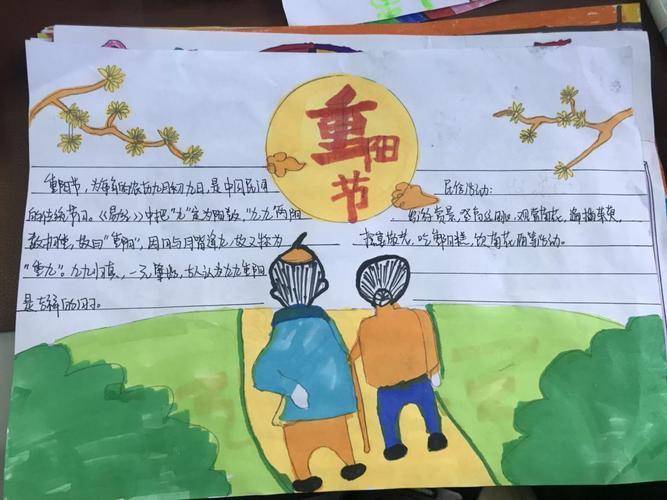 重阳节
重阳节，为每年的农历九月初九日，是中国民间
的传统节日。《易经》中把"九"定为阳数，"九九"两阳
数相重，故曰"重阳"，因日与月皆逢九，故又称为
"重九"。九九归真，一元肇始，古人认为九九重阳
是吉祥的日子。
民俗活动：
出游赏景、登高远眺、观赏菊花、遍插茱萸、
吃重阳糕、饮菊花酒等活动。